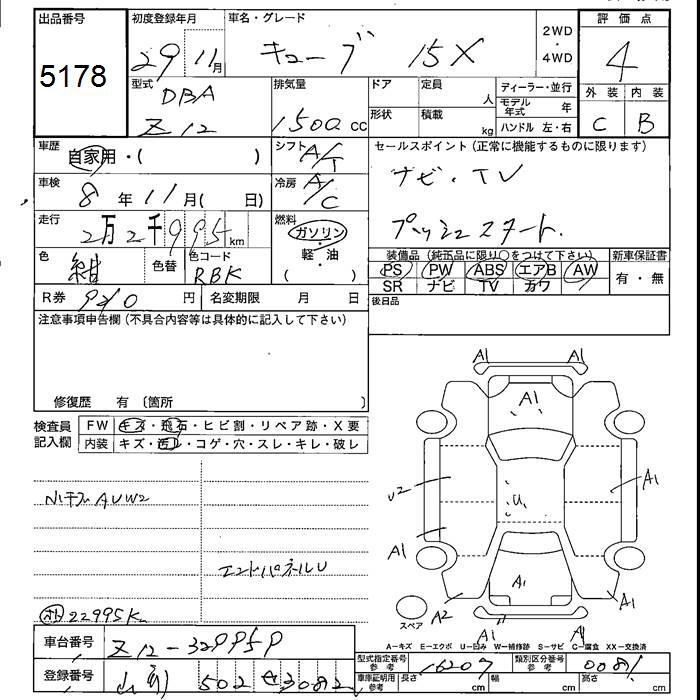 出品番号
5178
初度登録年月
29 11月
車名・グレード
キューブ 15X
2WD
・
4WD
評価点
4
型式
DBA
Z12
排気量
1500 cc
ドア
定員
人
形状
積載
kg
ディーラー・並行
モデル年式 年
ハンドル 左・右
外装 内装
C B
車歴
自家用・( )
シフト
A/T
セールスポイント(正常に機能するものに限ります)
ナビ・TV
プッシュスタート.
車検
8年11月( 日)
冷房
A/C
走行
2万2千995 km
燃料
ガソリン
・
軽・油
( )
色
紺
色替
色コード
RBK
装備品(純正品に限り○をつけて下さい)
PS PW ABS エアB AW
SR ナビ TV カワ
新車保証書
有・無
R券 9210 円
名変期限 月 日
後日品
注意事項申告欄(不具合内容等は具体的に記入して下さい)
修復歴 有〔箇所 〕
検査員記入欄
FW キズ・飛石・ヒビ割・リペア跡・X要
内装 キズ・汚レ・コゲ・穴・スレ・キレ・破レ
エンドパネルU
22995K
A1 A1
A1
U2
U
A1
A1
A1
A2
A1
A1
スペア
A-キズ E-エクボ U-凹み W-補修跡 S-サビ C-腐食 XX-交換済
車台番号
Z12-329959
登録番号
502 せ3082
型式指定番号
参考
16207
類別区分番号
参考
0081
車庫証明用
参考
長さ cm
幅 cm
高さ cm